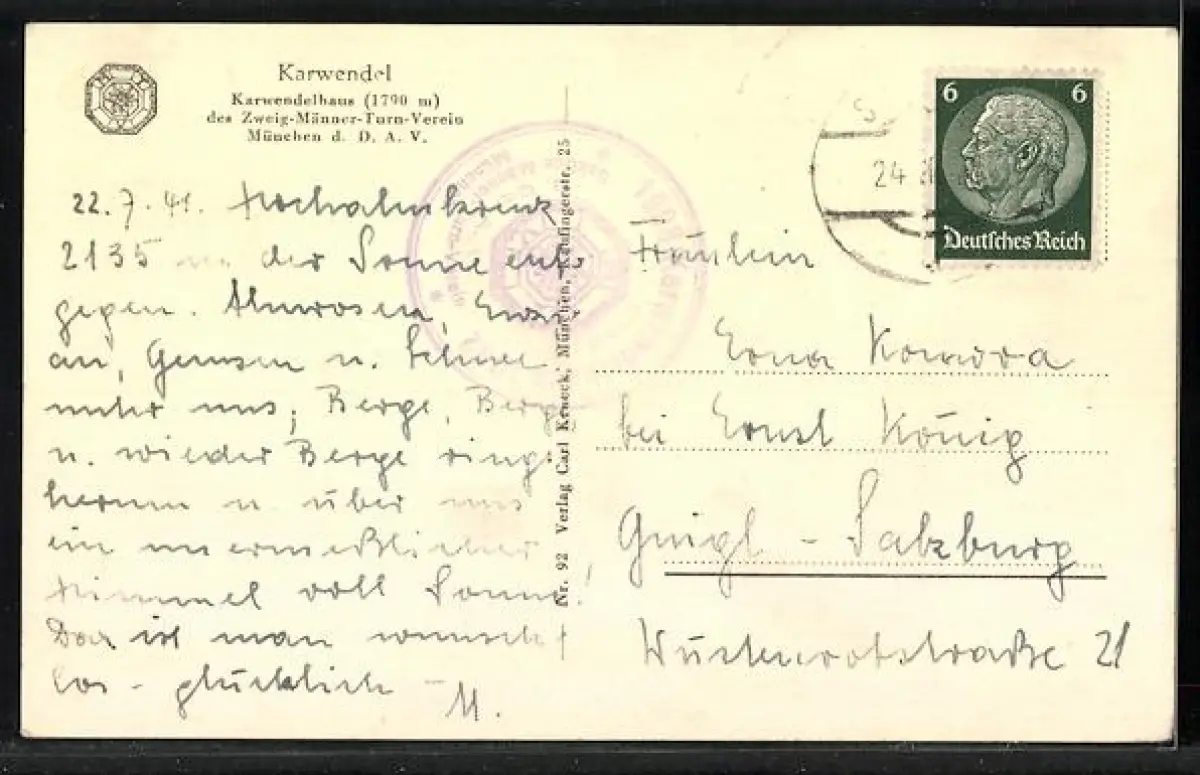 Karwendel
Karwendelhaus (1790 m)
des Zweig-Männer-Turn-Verein
München d. D. A. V.
22.7.41. Hochalmkreuz
2135 m der Sonne ent-
gegen. Almrosen, Enzi-
an, Gemsen u. Schnee
unter uns; Berge, Berge
u. wieder Berge rings-
herum u. über uns
ein unermeßlicher
Himmel voll Sonne!
Da ist man wunsch-
los - glücklich -
M.
Nr. 92 Verlag Carl München, Kaufingerstr. 25
24
6 6
Deutsches Reich
Fräulein
Erna Komora
bei Ernst König
Gnigl - Salzburg
Wüstenrotstraße 21